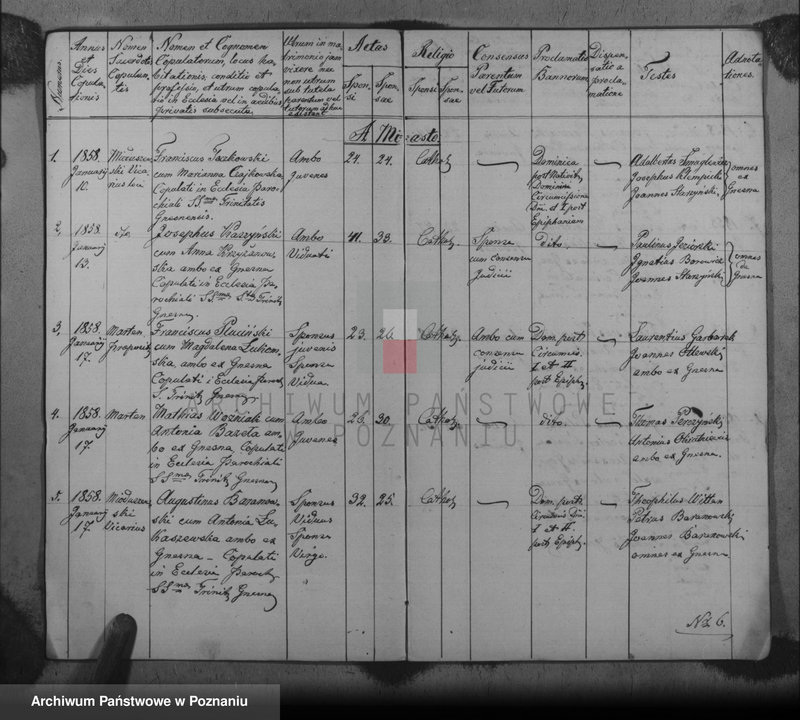 Numerus.
Annus et Dies Copulationis
Nomen Sacerdotis Copulantis
Nomen et Cognomen
Copulatorum, locus ha
bitationis, conditio et
profesio, et utrum copula
tio in Ecclesia vel in aedibus
privatis subsecuta
Utrum in ma
trimonio jam
vixere nec
non utrum
sub tutela
parentum vel
tutorum adhuc
existant
Aetas
Sponsi
Sponsae
Religio
Sponsi
Sponsae
Consensus
Parentum
vel Tutorum
Proclamatio
Bannorum
Dispen
satio a
procla
matione
Testes
Adnota
tiones.
A
1.
1858.
Januarij
10.
Franciscus
cum Marianna Czajkowska
Copulati in Ecclesia Paro
chiali SSmae Trinitatis
Gnesnensis.
Ambo
juvenes
24.
24.
Cathol
Dominica
post Nativit,
Dominini
Circumcisione
Dni. et I post
Epiphaniam
Josephus Klempicki
Joannes Starzyński
omnes
ex
Gnesna
2.
1858
Januarij
13.
dto
Josephus Kaszyński
cum Anna Krzyżanow
ska ambo ex Gnesna
Copulati in Ecclesia Pa
rochiali SSmae
Gnesna
Ambo
Viduati
41.
33.
Cathol
Sponsa
cum consensu
Judicii
dito
Paulinus Jeziorski
Ignatius Borowicz
Joannes Starzyński
omnes
de
Gnesna
3.
1858.
Januarij
17.
Marten
Franciscus Pluciński
cum Magdalena Łukom
ska, ambo ex Gnesna
Copulati i Ecclesia
S. Trinit Gnesna
Sponsus
juvenis
Sponsa
Vidua.
23.
26.
Cathol
Ambo cum
consensu
judicii
Dom. post
Circumcis.
I et II
post Epiph.
Laurentius Garbarek
Joannes Otlewski
ambo ex Gnesna
4.
1858.
Januarij
17.
Marten
Mathias Woźniak cum
Antonia Bazela am
bo ex Gnesna Copulati
in Ecclesia Parochiali
SSmae Trinit Gnesna
Ambo
Juvenes
26.
30.
Cathol
dito.
Thomas Perzyński
Antonius
ambo ex Gnesna.
5.
1858.
Januarij
17.
Vicarius
Augustinus Baranow
ski cum Antonia Łu
kaszewska ambo ex
Gnesna - Copulati
in Ecclesia Paroch
SSmae Trinit Gnesna
Sponsus
Viduus
Sponsa
Virgo.
32.
25.
Cathol
Dom. post
Circumcis Dni.
I et II.
post Epiph.
Theophilus Wittan
Petrus Baranowski
Joannes Baranowski
omines ex Gnesna
No 6.
ARCHIWUM PAŃSTWOWE
W POZNANIU
Archiwum Państwowe w Poznaniu